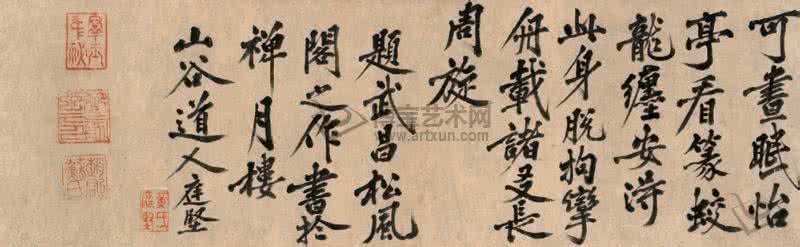 可晝眠怡
亭看篆蛟
龍纏安得
此身脫拘攣
舟載諸友長
周旋
題武昌松風
閣之作書於
禪月樓
山谷道人庭堅
博宝艺术网
www.artxun.com